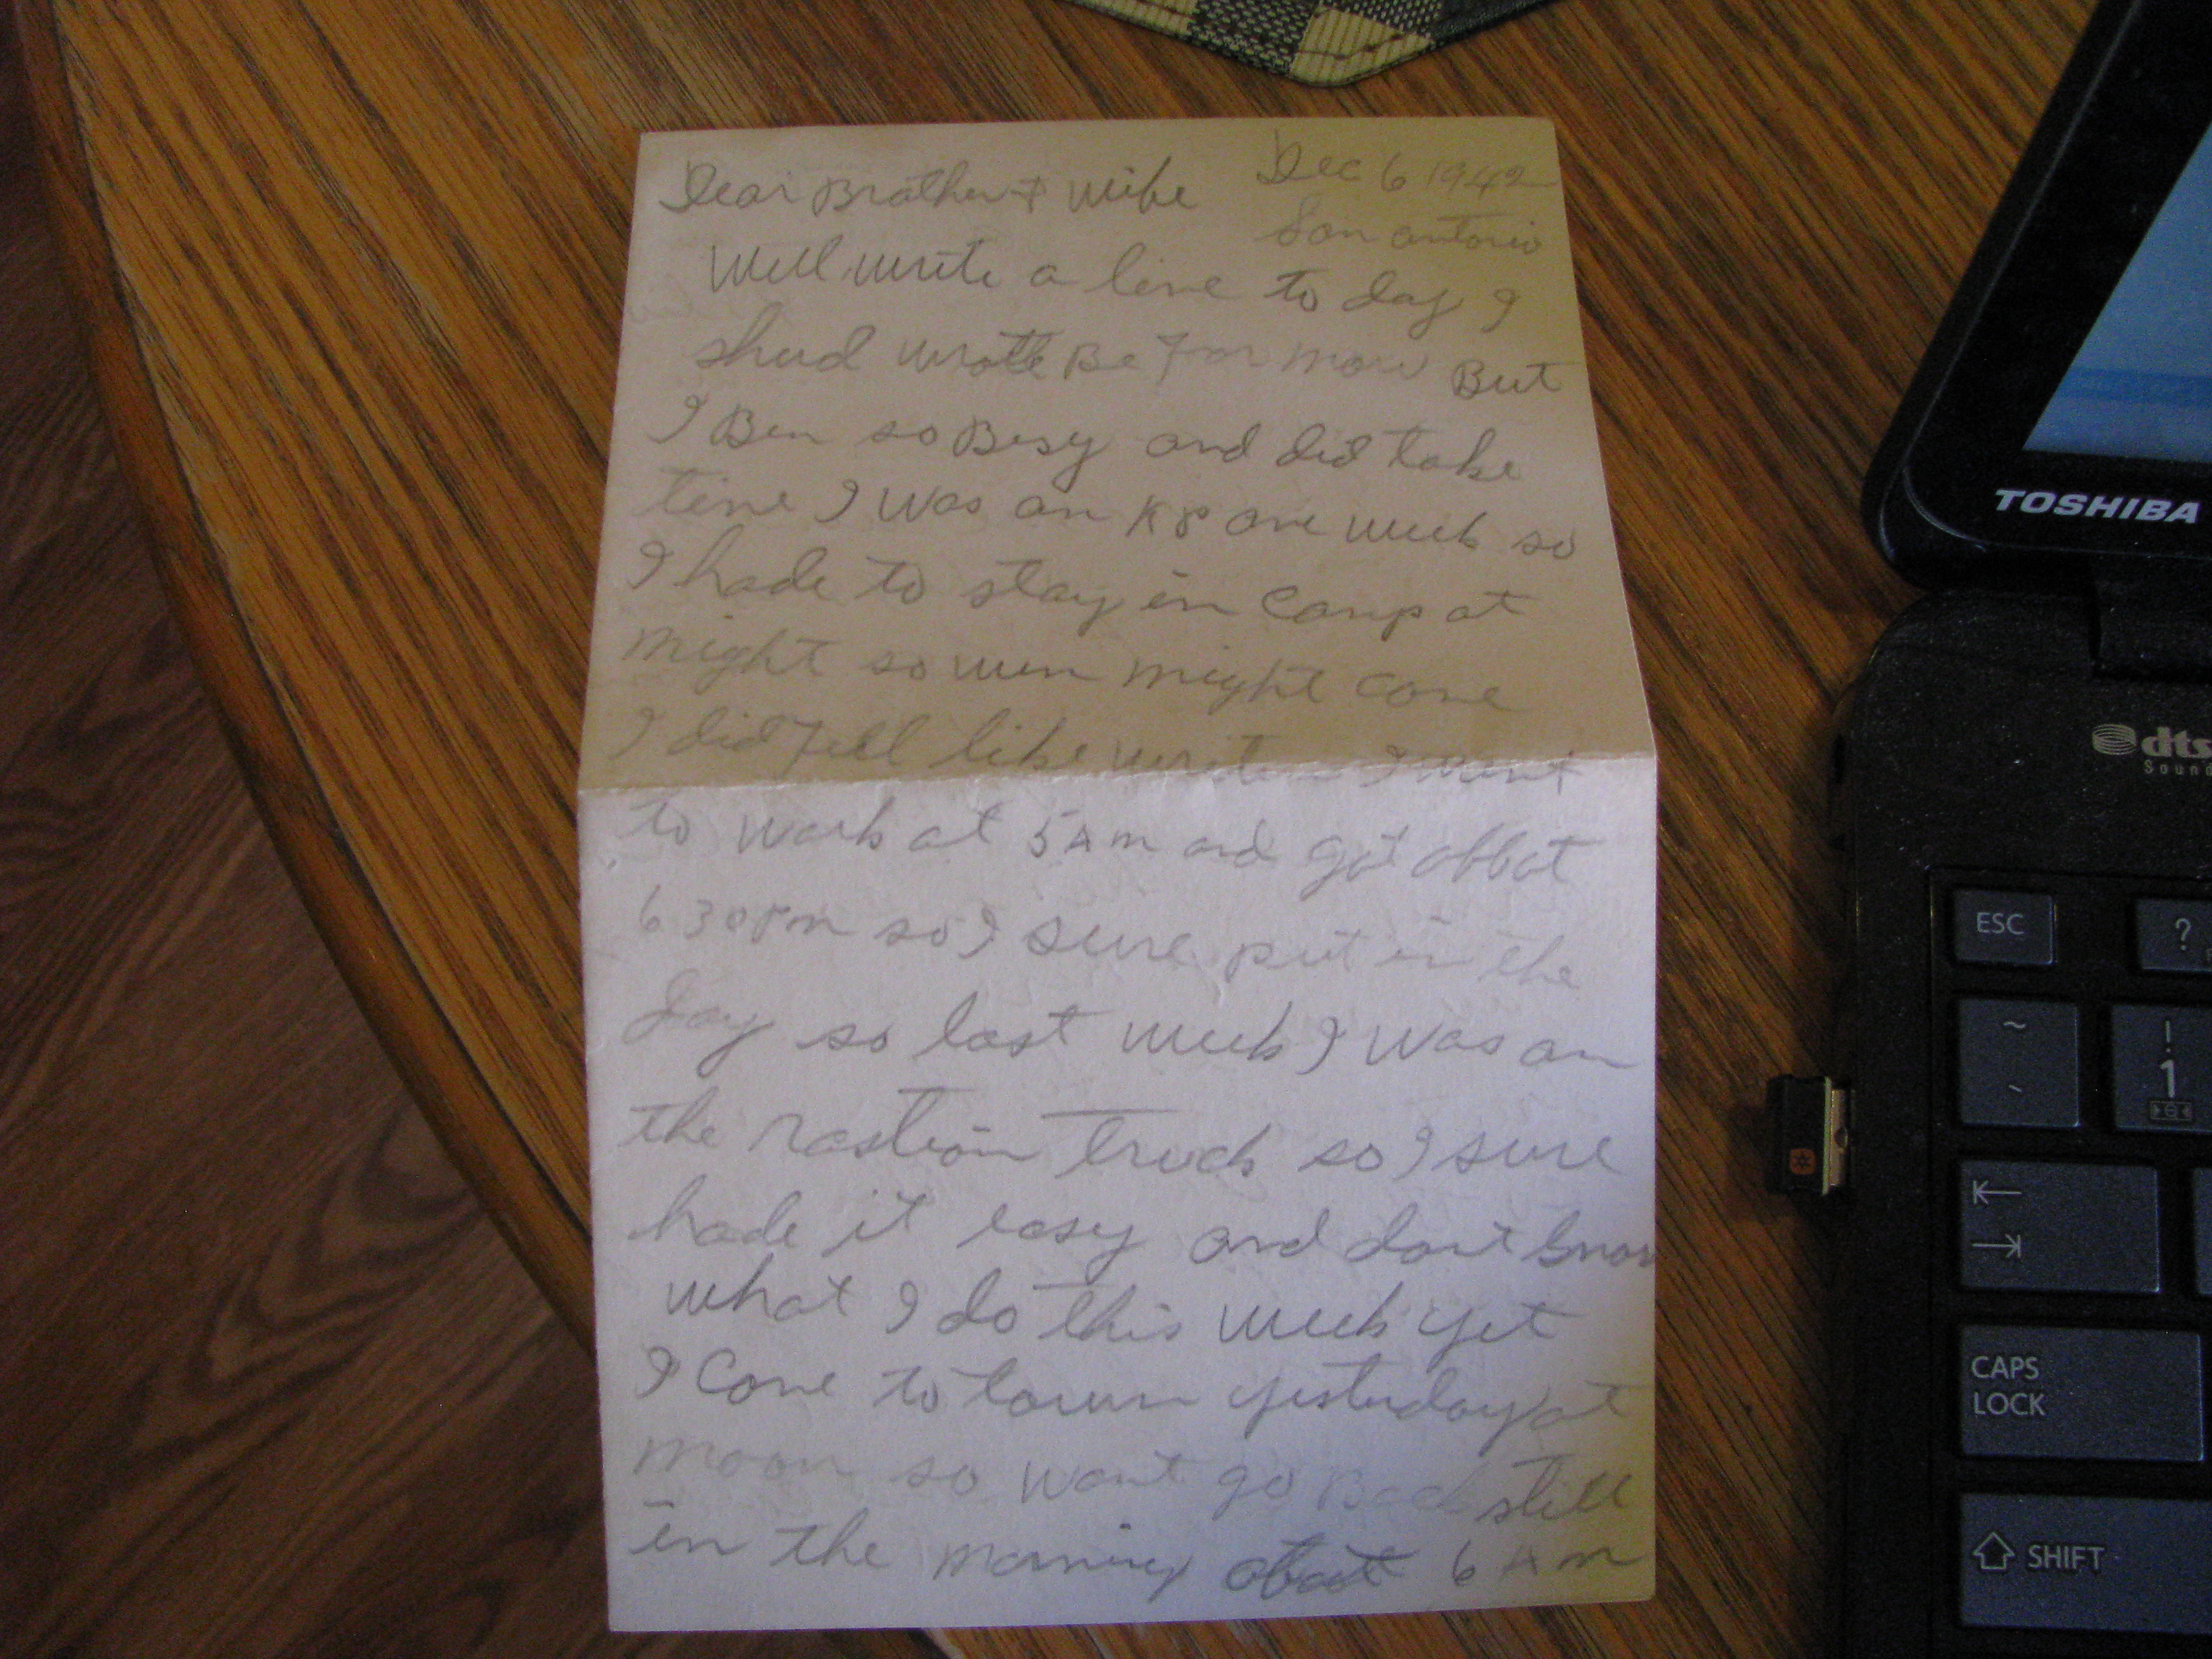 Dec 6 1942
Dear Brother + Wife
San antonio
Well write a line to day I
shud wrote Be for now But
I Ben so Besy and did take
time I was on KP one week so
I hade to stay in Camp at
night so wen night come
I did fell like writen I went
to work at 5 AM and got off at
6 30 PM so I sure put in the
day so last week I was on
the rastion truck so I sure
hade it easy and dont know
what I do this week yet
I Come to town yesterday at
noon so wont go Back still
in the morning about 6 AM
TOSHIBA
dts
Sound
ESC
?
~
!
`
1
CAPS
LOCK
SHIFT